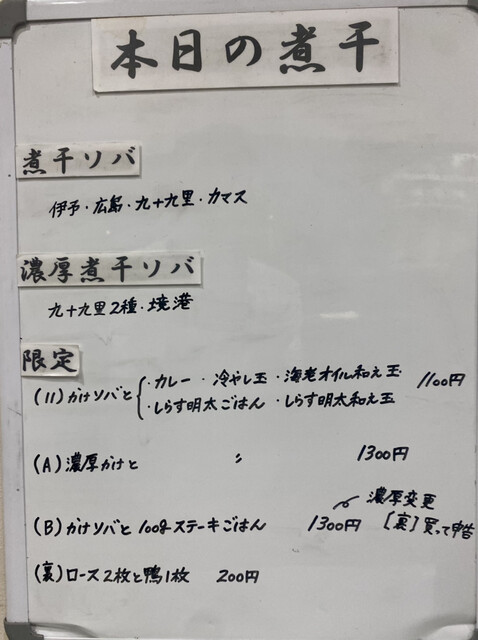 本日の煮干
煮干ソバ
伊予・広島・九十九里・カマス
濃厚煮干ソバ
九十九里2種・境港
限定
(11)かけソバと ・カレー ・冷やし玉 ・海老オイル和え玉 1100円
・しらす明太ごはん ・しらす明太和え玉
(A)濃厚かけと 〃 1300円
濃厚変更
(B)かけソバと100gステーキごはん 1300円 [裏]買って申告
(裏)ロース2枚と鴨1枚 200円